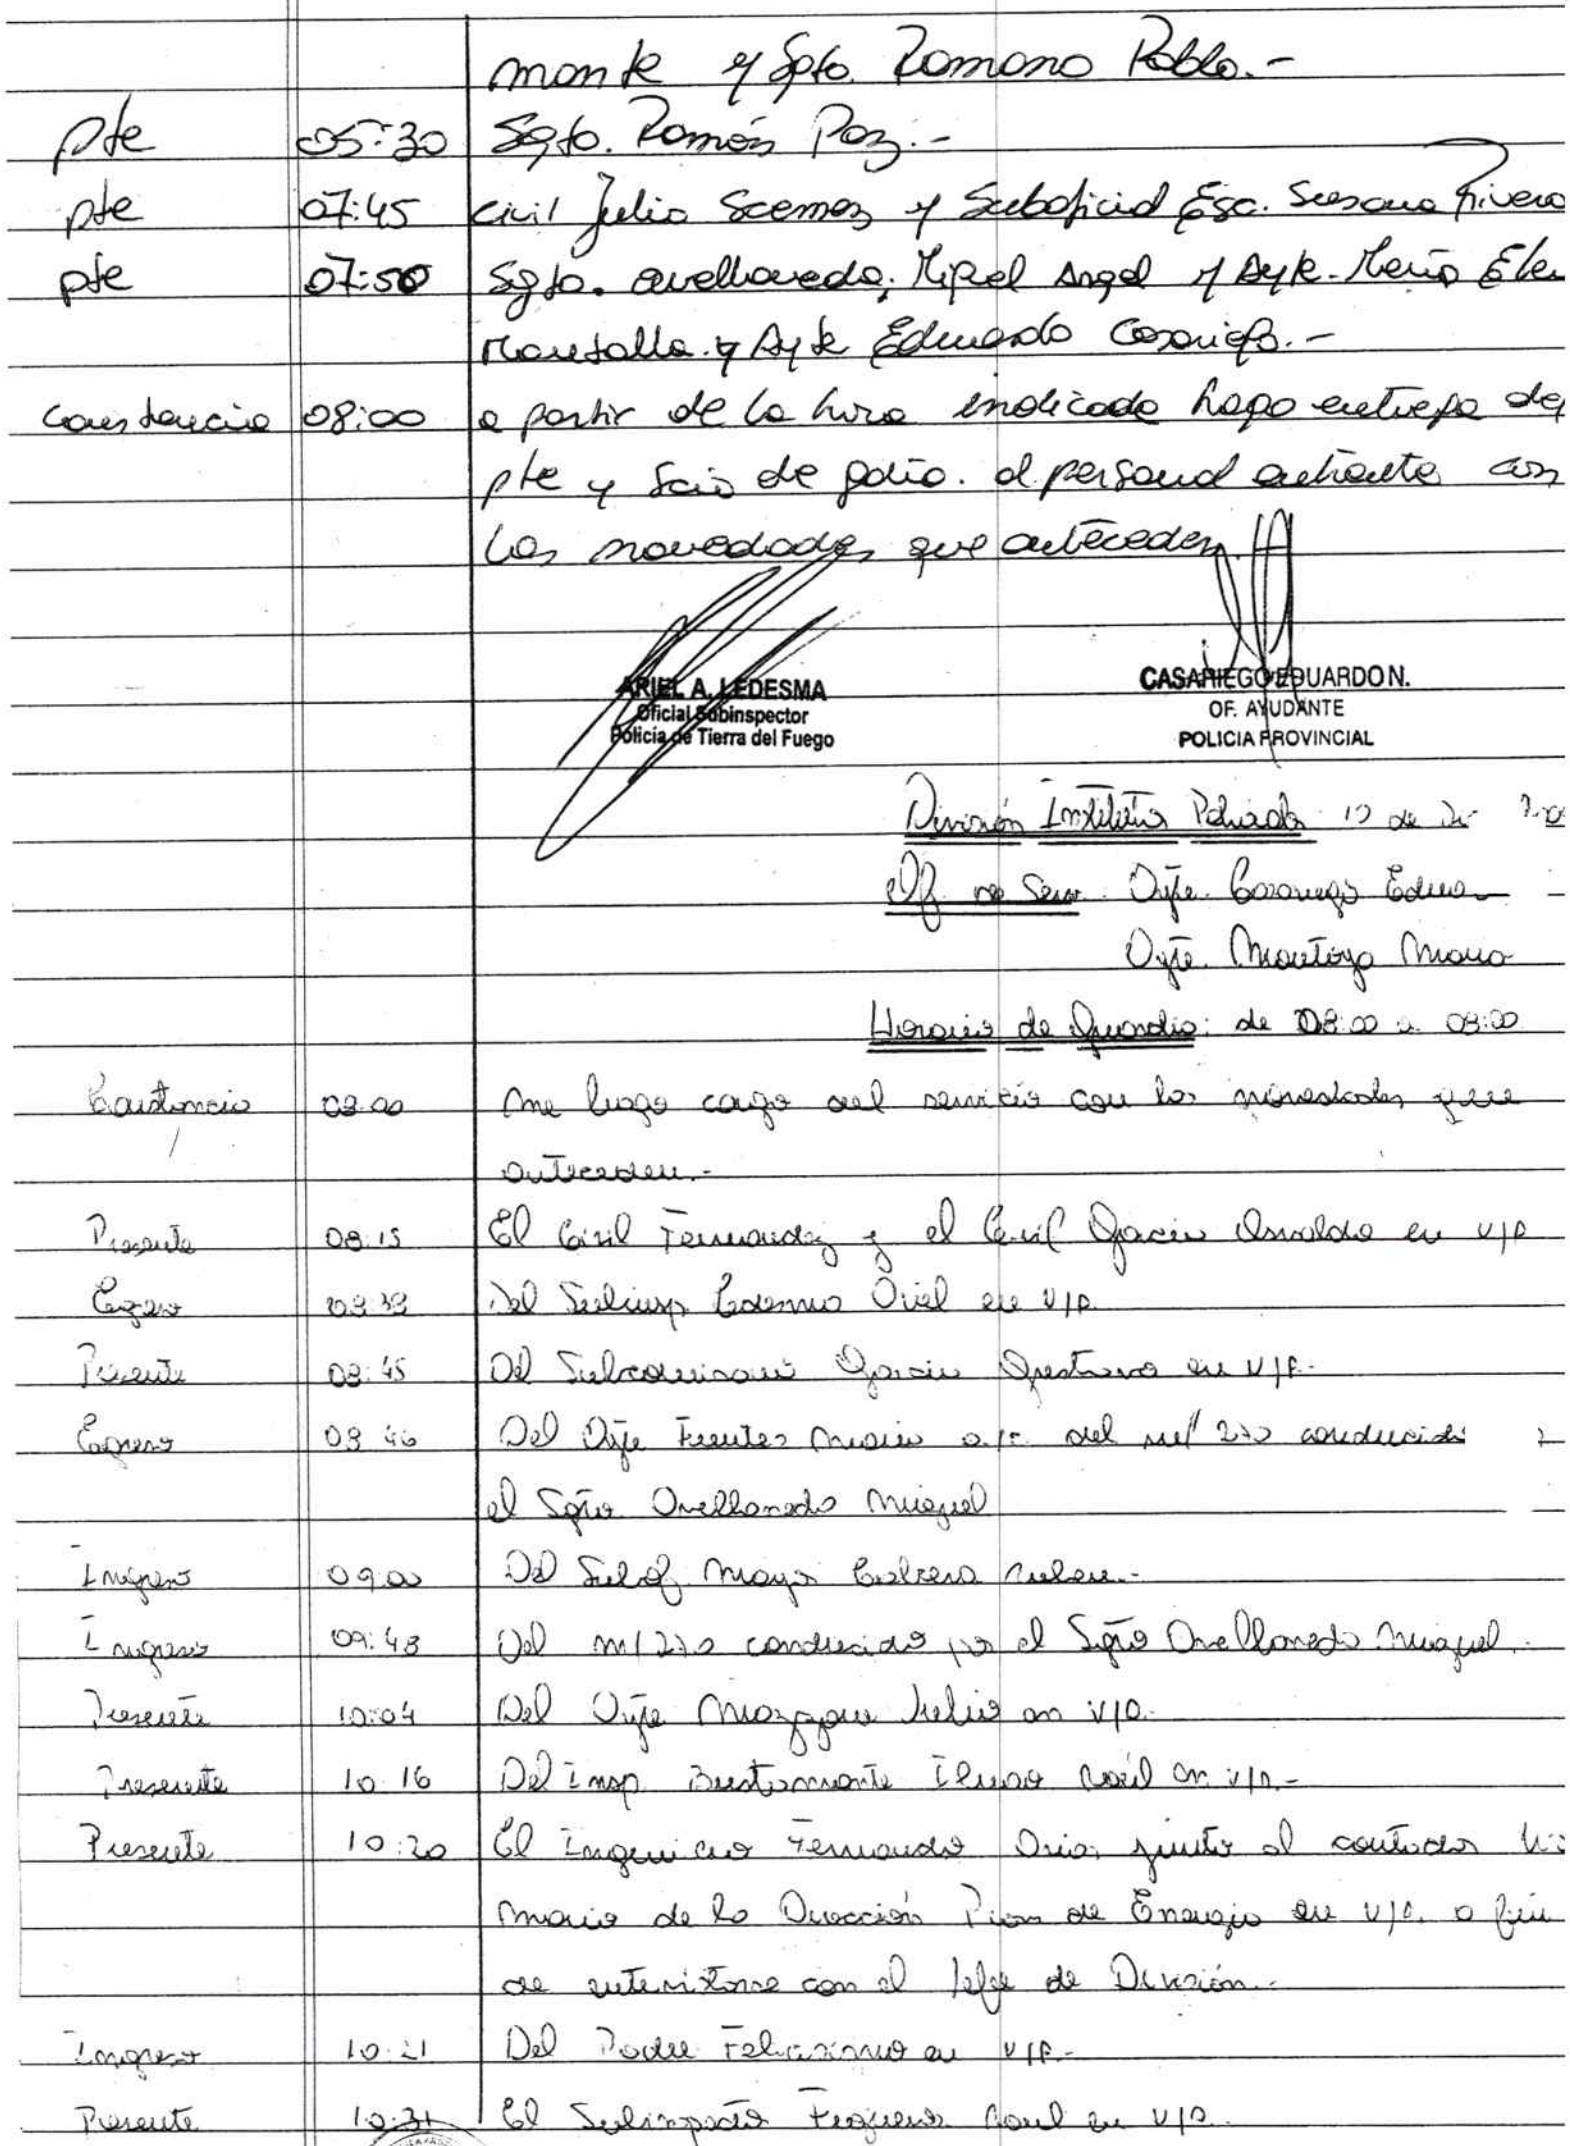 monte y Sgto. Romano Pablo.-
pte 05:30 Sgto. Ramón Paz.-
pte 07:45 Civil Julio Scemaz y Suboficial Esc. Susana Rivero
pte 07:50 Sgto. avellaneda, Miguel Angel y Ayte. María Elen
y Ayte Eduardo Casariego.-
constancia 08:00 a partir de la hora indicada hago entrega de
pte y de gdia. al personal entrante con
las novedades que anteceden
ARIEL A. LEDESMA
Oficial Subinspector
Policia de Tierra del Fuego
CASARIEGO EDUARDO N.
OF. AYUDANTE
POLICIA PROVINCIAL
División Instituto Policial 10 de
Of. de Serv. Ayte. Casariego Edua
Ayte. Montoya Maria
Horario de Guardia: de 08:00 a 08:00
Constancia 08:00 me hago cargo del servicio con las novedades que
anteceden.-
Presente 08:15 El Civil Fernandez y el Civil Garcia Osvaldo en v/p
Egreso 08:38 Del Subinsp Ledesma Ariel en v/p.
Presente 08:45 Del Subcomisario Garcia Gustavo en v/p.-
Egreso 08:46 Del Ayte Fuentes Mario a/c. del m/ 270 conducido
el Sgto Avellaneda Miguel
Ingreso 09:00 Del Subof. Mayor Cabrera Ruben.-
Ingreso 09:48 Del m/270 conducido por el Sgto Avellaneda Miguel.-
Presente 10:04 Del Ayte Julio en v/p.-
Presente 10:16 Del Insp. Bustamante Raúl en v/p.-
Presente 10:20 El Ingeniero Fernando junto al contador
Mario de la Dirección Prov de Energia en v/p. a fin
de entrevistarse con el Jefe de División.-
Ingreso 10:21 Del Padre Feliciano en v/p.-
Presente 10:31 El Subinspector Raul en v/p.